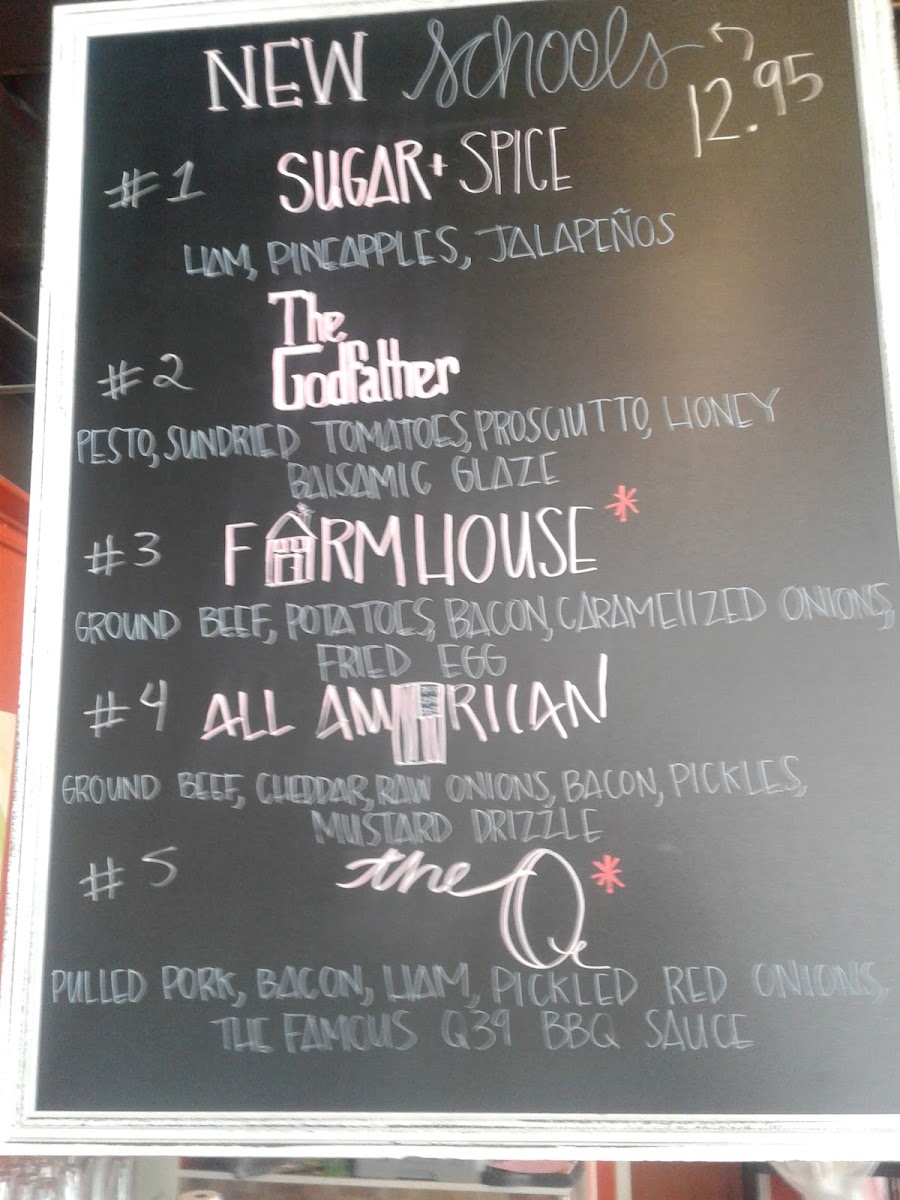 NEW Schools
12.95
#1 SUGAR + SPICE
HAM, PINEAPPLES, JALAPEÑOS
The
#2 Godfather
PESTO, SUNDRIED TOMATOES, PROSCIUTTO, HONEY
BALSAMIC GLAZE
#3 FARMHOUSE *
GROUND BEEF, POTATOES, BACON, CARAMELIZED ONIONS,
FRIED EGG
#4 ALL AMERICAN
GROUND BEEF, CHEDDAR, RAW ONIONS, BACON, PICKLES,
MUSTARD DRIZZLE
#5 the Q *
PULLED PORK, BACON, HAM, PICKLED RED ONIONS,
THE FAMOUS Q39 BBQ SAUCE